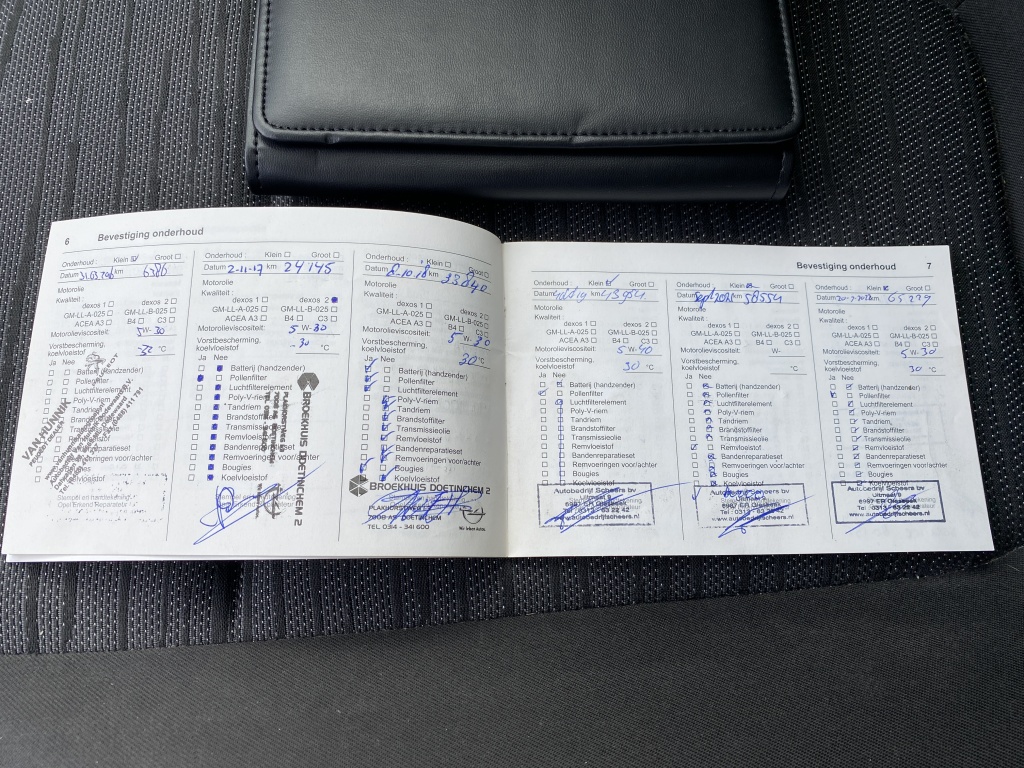 6 Bevestiging onderhoud
Onderhoud : Klein Groot
Datum 31.03 km 6386
Motorolie
Kwaliteit :
dexos 1 dexos 2
GM-LL-A-025 GM-LL-B-025
ACEA A3 B4 C3
Motorolieviscositeit: 5 W- 30
Vorstbescherming,
koelvloeistof °C
Ja Nee
Batterij (handzender)
Pollenfilter
Luchtfilterelement
Poly-V-riem
Tandriem
Brandstoffilter
Transmissieolie
Remvloeistof
Bandenreparatieset
Remvoeringen voor/achter
Bougies
Koelvloeistof
VAN MÜNIK
Stempel en handtekening
Opel Erkend Reparateur
Onderhoud : Klein Groot
Datum 2-11-17 km 24145
Motorolie
Kwaliteit :
dexos 1 dexos 2
GM-LL-A-025 GM-LL-B-025
ACEA A3 B4 C3
Motorolieviscositeit: 5 W-30
Vorstbescherming,
koelvloeistof -30 °C
Ja Nee
Batterij (handzender)
Pollenfilter
Luchtfilterelement
Poly-V-riem
Tandriem
Brandstoffilter
Transmissieolie
Remvloeistof
Bandenreparatieset
Remvoeringen voor/achter
Bougies
Koelvloeistof
BROEKHUIS DOETINCHEM 2
Onderhoud : Klein Groot
Datum 8-10-18 km 33840
Motorolie
Kwaliteit :
dexos 1 dexos 2
GM-LL-A-025 GM-LL-B-025
ACEA A3 B4 C3
Motorolieviscositeit: 5 W- 30
Vorstbescherming,
koelvloeistof 30 °C
Ja Nee
Batterij (handzender)
Pollenfilter
Luchtfilterelement
Poly-V-riem
Tandriem
Brandstoffilter
Transmissieolie
Remvloeistof
Bandenreparatieset
Remvoeringen voor/achter
Bougies
Koelvloeistof
BROEKHUIS DOETINCHEM 2
DOETINCHEM
TEL 0314 - 341 600
Wir leben Autos.
Bevestiging onderhoud 7
Onderhoud : Klein Groot
Datum km 43954
Motorolie
Kwaliteit :
dexos 1 dexos 2
GM-LL-A-025 GM-LL-B-025
ACEA A3 B4 C3
Motorolieviscositeit: 5 W-40
Vorstbescherming,
koelvloeistof 30 °C
Ja Nee
Batterij (handzender)
Pollenfilter
Luchtfilterelement
Poly-V-riem
Tandriem
Brandstoffilter
Transmissieolie
Remvloeistof
Bandenreparatieset
Remvoeringen voor/achter
Bougies
Koelvloeistof
Autobedrijf Scheers bv
Uitmaat 9
6987 ER Giesbeek
Tel : 0313 - 63 22 42
www.autobedrijfscheers.nl
Onderhoud : Klein Groot
Datum Sept km 58554
Motorolie
Kwaliteit :
dexos 1 dexos 2
GM-LL-A-025 GM-LL-B-025
ACEA A3 B4 C3
Motorolieviscositeit: W-
Vorstbescherming,
koelvloeistof °C
Ja Nee
Batterij (handzender)
Pollenfilter
Luchtfilterelement
Poly-V-riem
Tandriem
Brandstoffilter
Transmissieolie
Remvloeistof
Bandenreparatieset
Remvoeringen voor/achter
Bougies
Koelvloeistof
Autobedrijf Scheers bv
Uitmaat 9
6987 ER Giesbeek
Tel : 0313 - 63 22 42
www.autobedrijfscheers.nl
Onderhoud : Klein Groot
Datum km 65229
Motorolie
Kwaliteit :
dexos 1 dexos 2
GM-LL-A-025 GM-LL-B-025
ACEA A3 B4 C3
Motorolieviscositeit: 5 W-30
Vorstbescherming,
koelvloeistof 30 °C
Ja Nee
Batterij (handzender)
Pollenfilter
Luchtfilterelement
Poly-V-riem
Tandriem
Brandstoffilter
Transmissieolie
Remvloeistof
Bandenreparatieset
Remvoeringen voor/achter
Bougies
Koelvloeistof
Autobedrijf Scheers bv
Uitmaat 9
6987 ER Giesbeek
Tel : 0313 - 63 22 42
www.autobedrijfscheers.nl